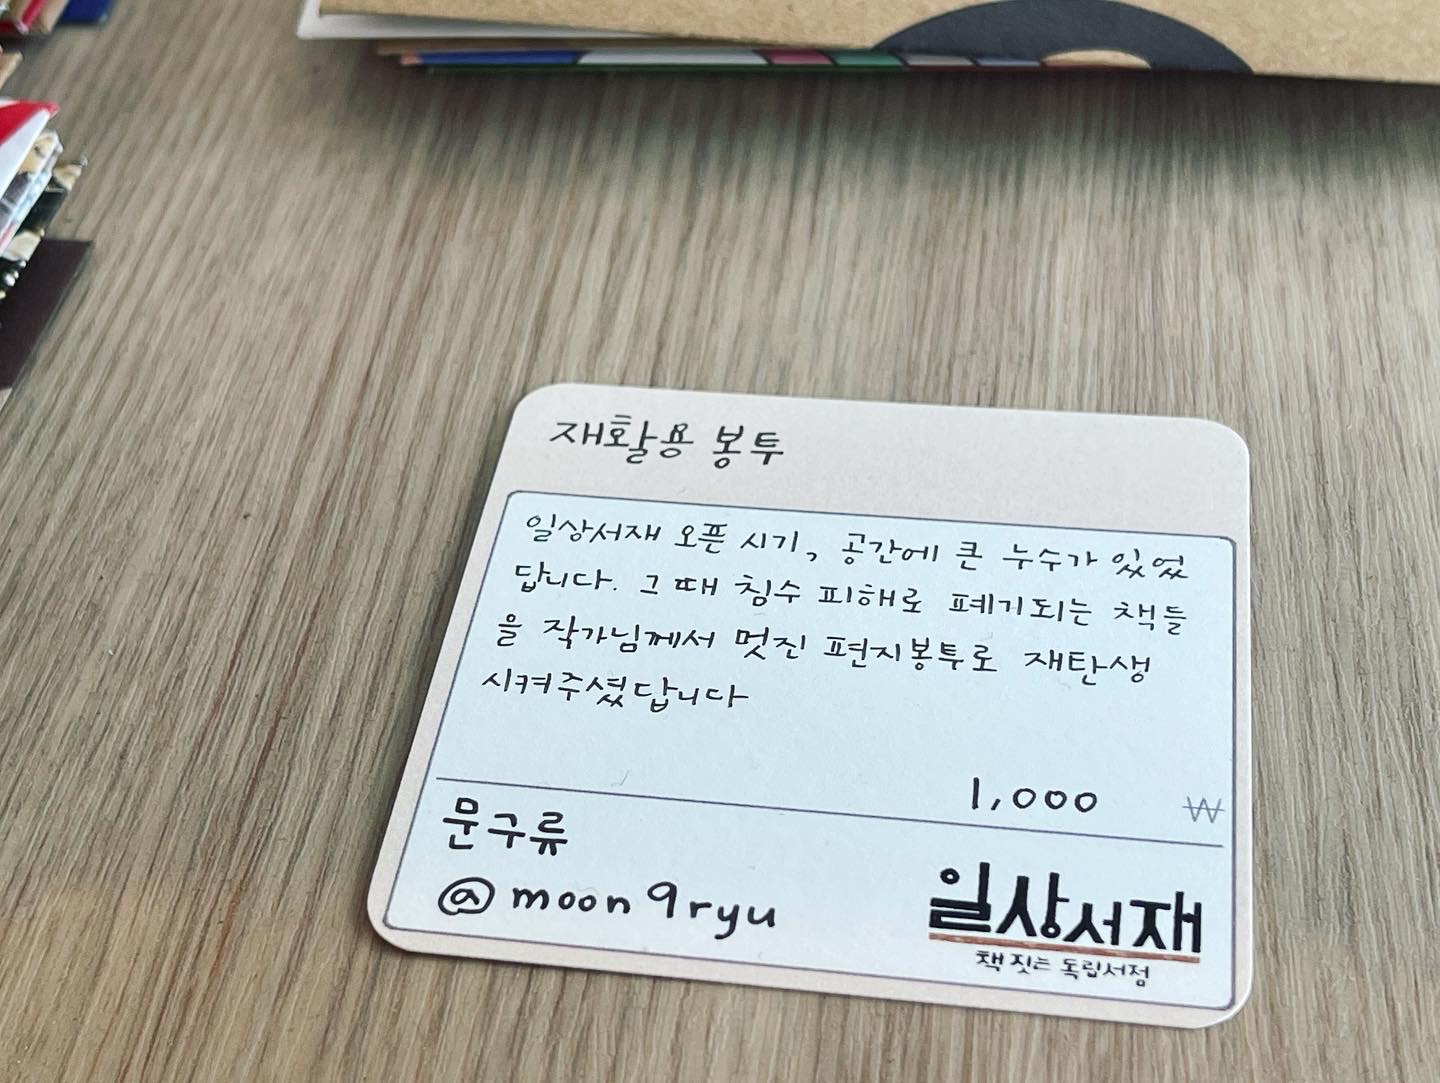 재활용 봉투
일상서재 오픈 시기, 공간에 큰 누수가 있었
답니다. 그 때 침수 피해로 폐기되는 책들
을 작가님께서 멋진 편지봉투로 재탄생
시켜주셨답니다
1,000 ₩
문구류
@moon9ryu
일상서재
책 짓는 독립서점